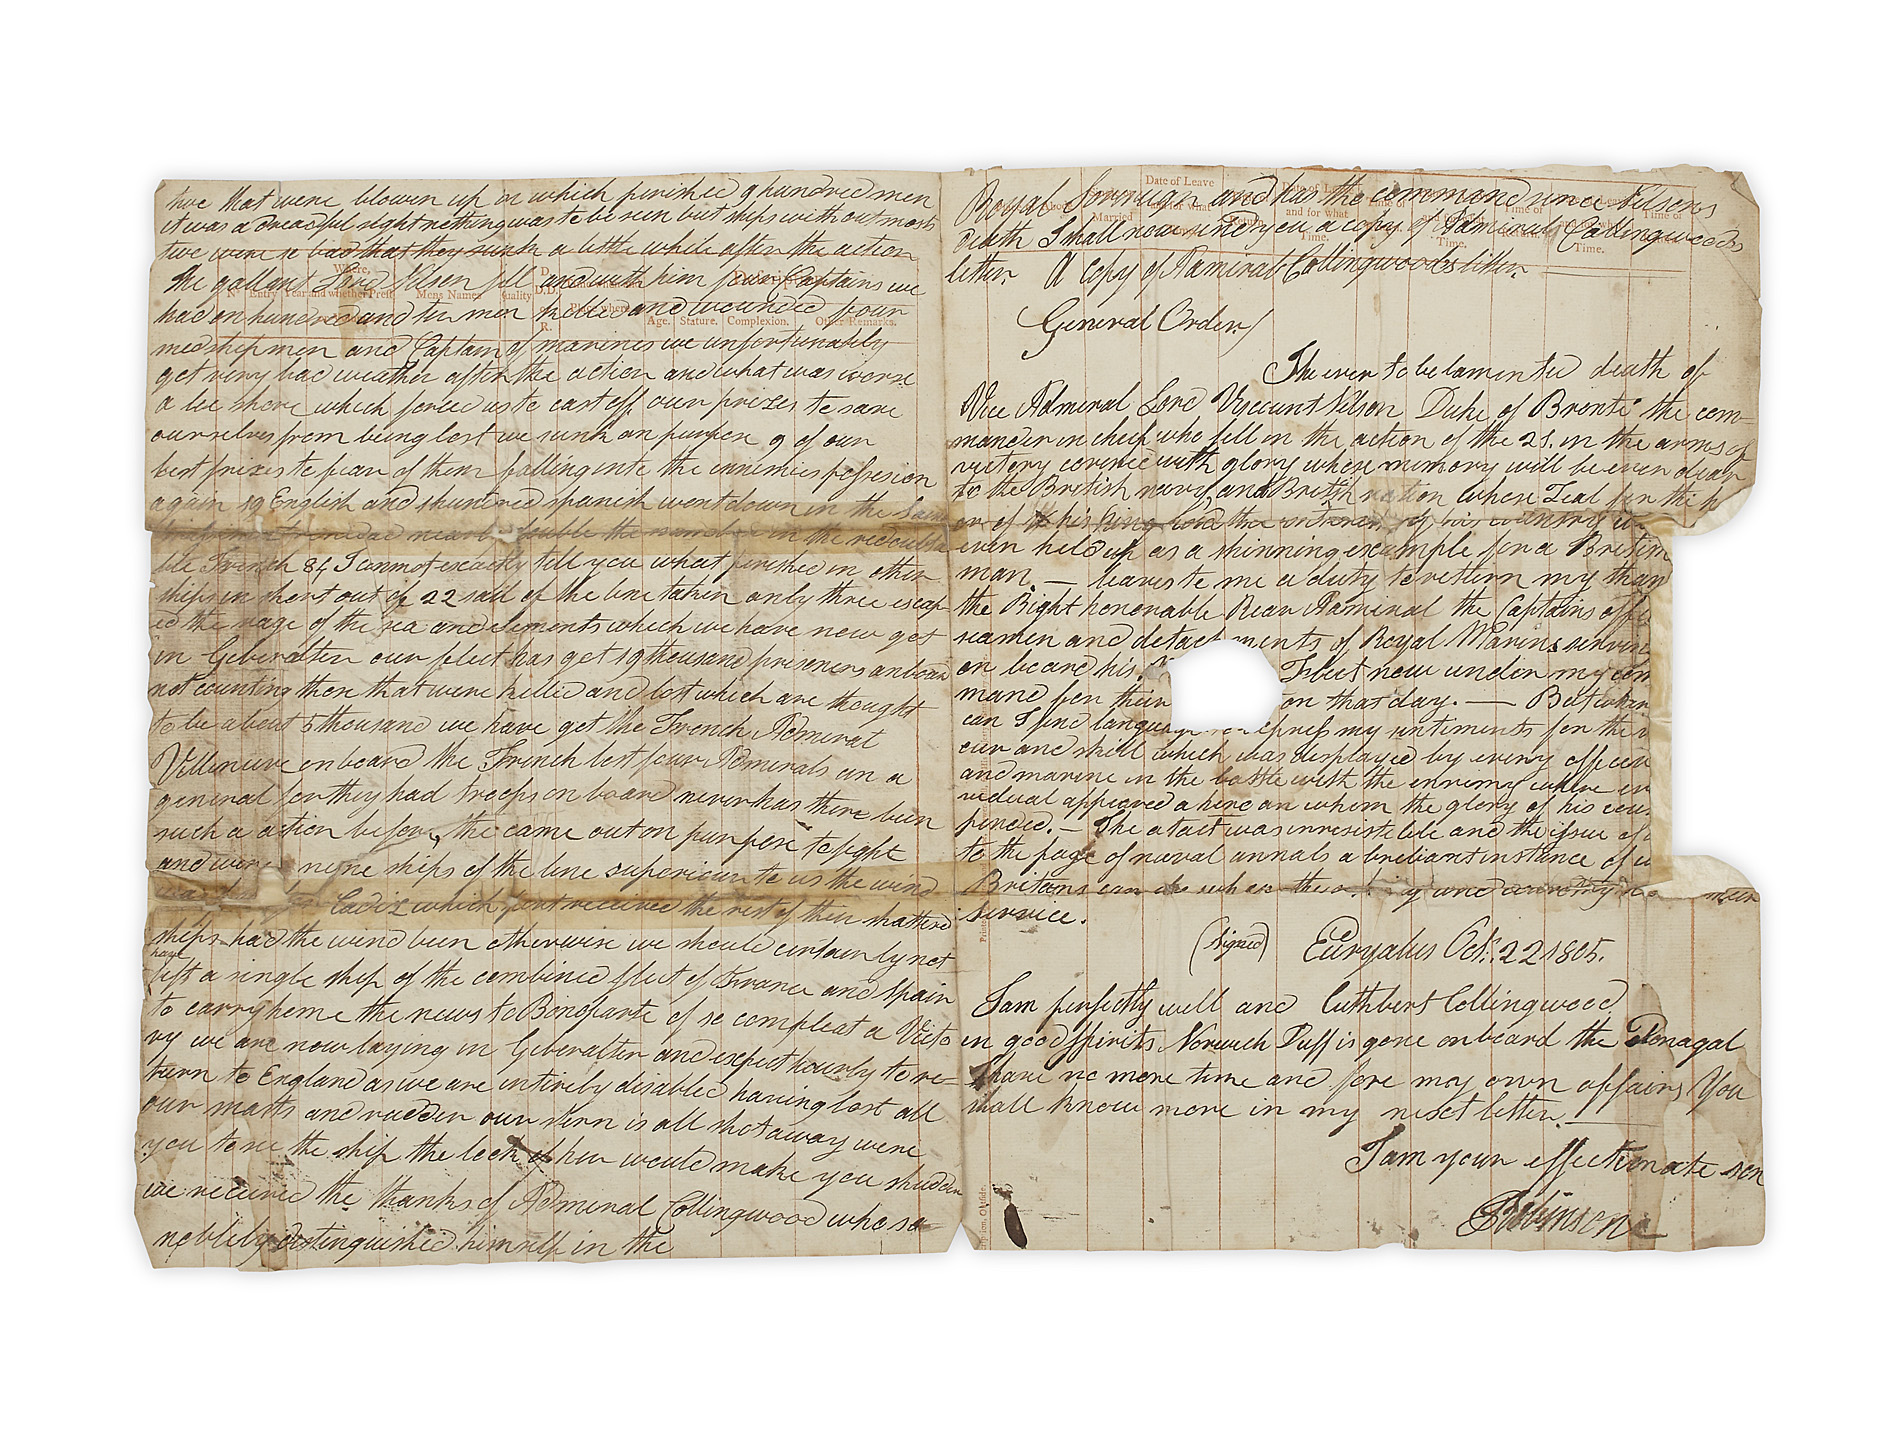 two that were blown up in which perished 9 hundred men
it was a dreadful sight nothing was to be seen but ships without masts
two were so bad that they sunk a little while after the action
the gallant Lord Nilson fell and with him four Captains we
had on hundred and ten men killed and wounded four
medshepmen and Captain of marines we unfortunately
get very bad weather after the action and what was worse
a lee shore which forced us to cast off our prizes to save
ourselves from being lost we sunk on purpose 9 of our
best prizes to fear of them falling into the ennimies possesion
again 19 English and 5 hundred spanish went down in the Same
double the number in the redoubta
ble French 84 I cannot exactly tell you what perished in other
ships in short out of 22 sail of the line taken only three escap-
ed the rage of the sea and elements which we have now got
in Giberalter our fleet has got 19 thousand prisoners on board
not counting those that were killed and lost which are thought
to be about 5 thousand we have got the French Admiral
Villineuve on board the French lost four Admirals an a
general for they had troops on board never has there been
such a action before, the came out on purpose to fight
and were nine ships of the line superiour to us the wind
Cadiz which port received the rest of their shatterd
ships had the wind been otherwise we should certainly not
have
left a single ship of the combined fleet of France and Spain
to carry home the news to Bonoparte of so compleat a Victo
ry we are now laying in Giberalter and expect hourly to re-
turn to England as we are intirely disabled having lost all
our masts and rudder our stern is all shot away were
you to see the ship the look of her would make you shudder
we received the thanks of Admiral Collingwood who so
noblely distinguished himself in the
Date of Leave
Royal Sovereign and has the command since Nilsons
Married and for what Return and for what Time of Time of
death I shall now send you a copy of Admiral Collingwoods
Time. Time. Time.
letter. A copy of Admiral Collingwoods letter.
General Order/
The ever to be lamented death of
Vice Admiral Lord Viscount Nilson Duke of Bronti the com-
mander in cheif who fell in the action of the 21. in the arms of
victory covered with glory whose memory will be ever dear
to the British navy, and British nation whose Zeal for the h
or of his king and the interests of his country w
ever held up as a shinning example for a British
man. — leaves to me a duty to return my than
the Right honorable Rear Admiral the Captains offi
seamen and detachments of Royal Marines serving
on board his Fleet now under my com
mand for their on that day. — But where
can I find language to express my sentiments for the v
our and skill which was displayed by every officer
and marine in the battle with the ennemy where ev
vidual appeared a hero on whom the glory of his coun
pended. — The attact was irresistible and the issue of
to the page of naval annals a briliant instance of w
Britons can do when their king and country
service.
(signed) Euryalus Oct. 22 1805.
I am perfectly well and Cuthbert Collingwood
in good spirits Norwich Duff is gone on board the Donagal
I have no more time and fore my own affairs You
shall know more in my next letter.
I am your affectionate son
Robinson
Where,
No Entry Year and whether Prest Mens Names quality D.D.
R. Age. Stature. Complexion. Other Remarks.